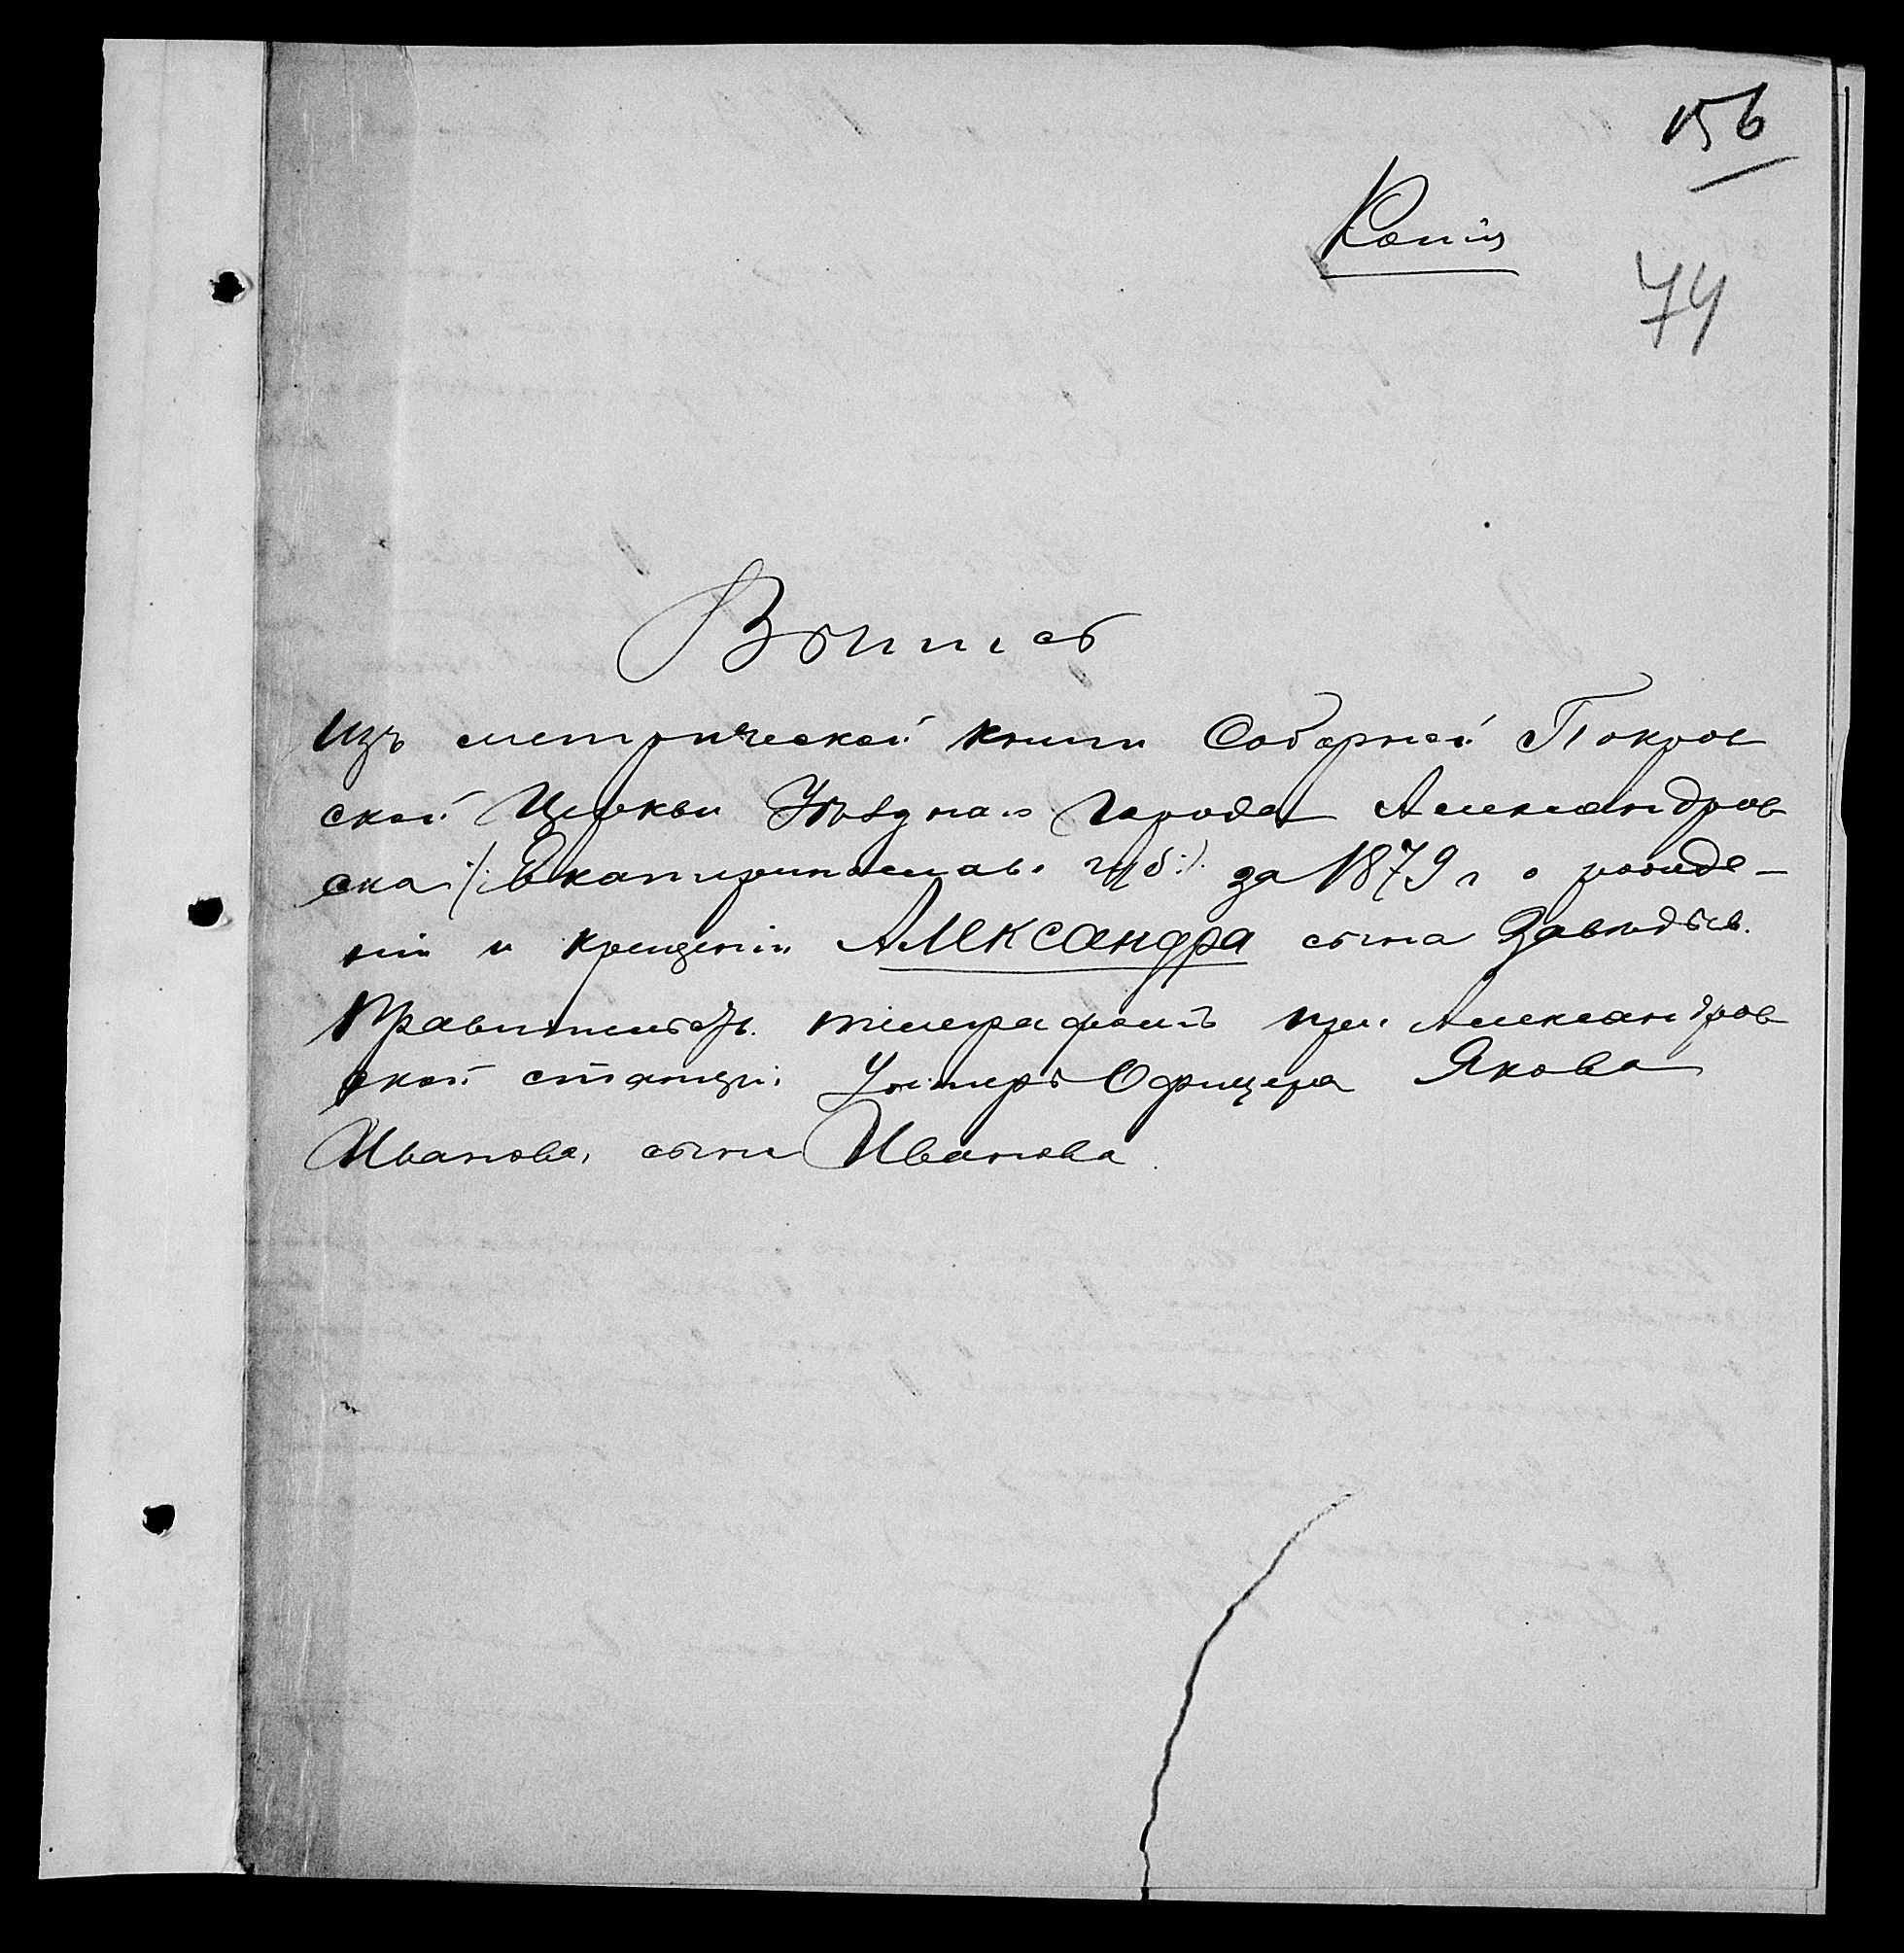 156
Копія
74
Выпись
изъ метрической книги Соборной Покров
ской Церкви Уѣзднаго города Александров
ска /:Екатеринослав. губ:/. за 1879 г о рожде-
ніи и крещеніи Александра сына Завѣдыв.
Правительств. телеграфомъ при Александров
ской станціи Унтеръ Офицера Якова
Иванова, сына Иванова.